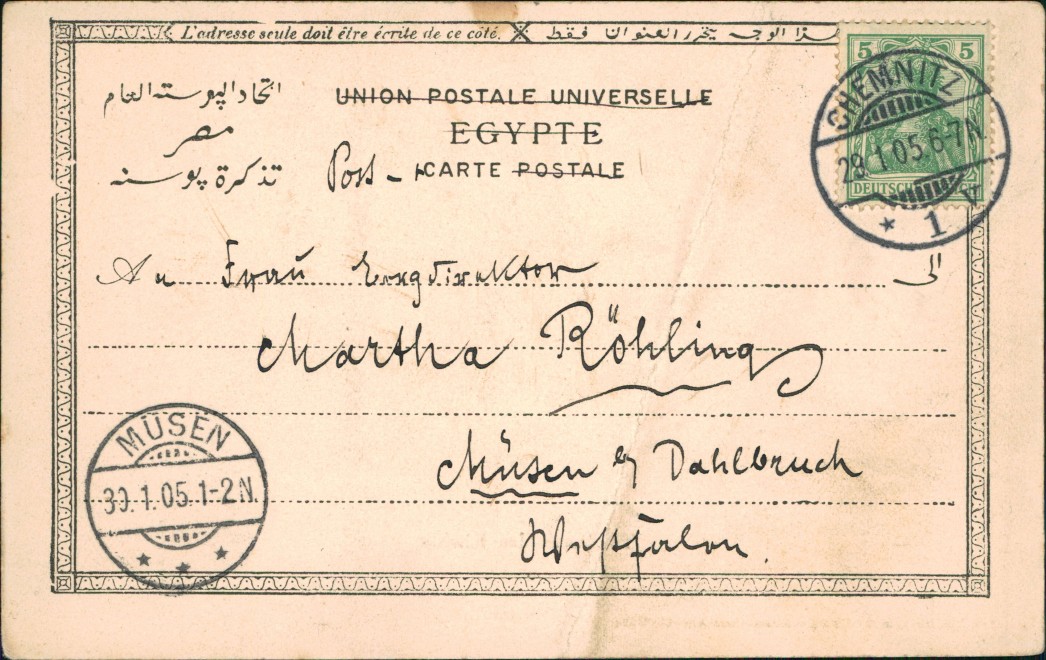 L'adresse seule doit être écrite de ce côté. هذا الوجه يتحرر العنوان فقط
اتحاد البوسته العام
مصر
تذكرة بوسته
UNION POSTALE UNIVERSELLE
EGYPTE
Post- CARTE POSTALE
5 5
DEUTSCHES
CHEMNITZ
29.1.05.6-7N.
* 1 v
An Frau Bergdirektor
الى
Martha Röhling
Müsen b/ Dahlbruch
Westfalen.
MÜSEN
30.1.05.1-2N.